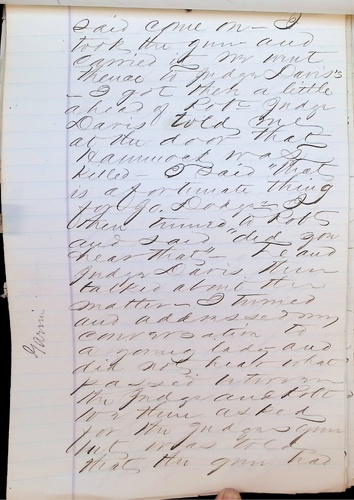 said come on - I
took the gun and
carried it we went
thence to Judge Davis's
- I got there a little
ahead of Rob. Judge
Davis told me
at the door that
Hammock was
killed - I said "that
is a fortunate thing
for Ga. I
then turned to Rob
and said "did you
hear that" - He and
Judge Davis then
talked about the
matter - I turned
and addressed my
conversation to
a young lady and
did not hear what
passed between
the Judge and Rob
We then asked
for the Judges gun
but was told
that the gun had
Garvin